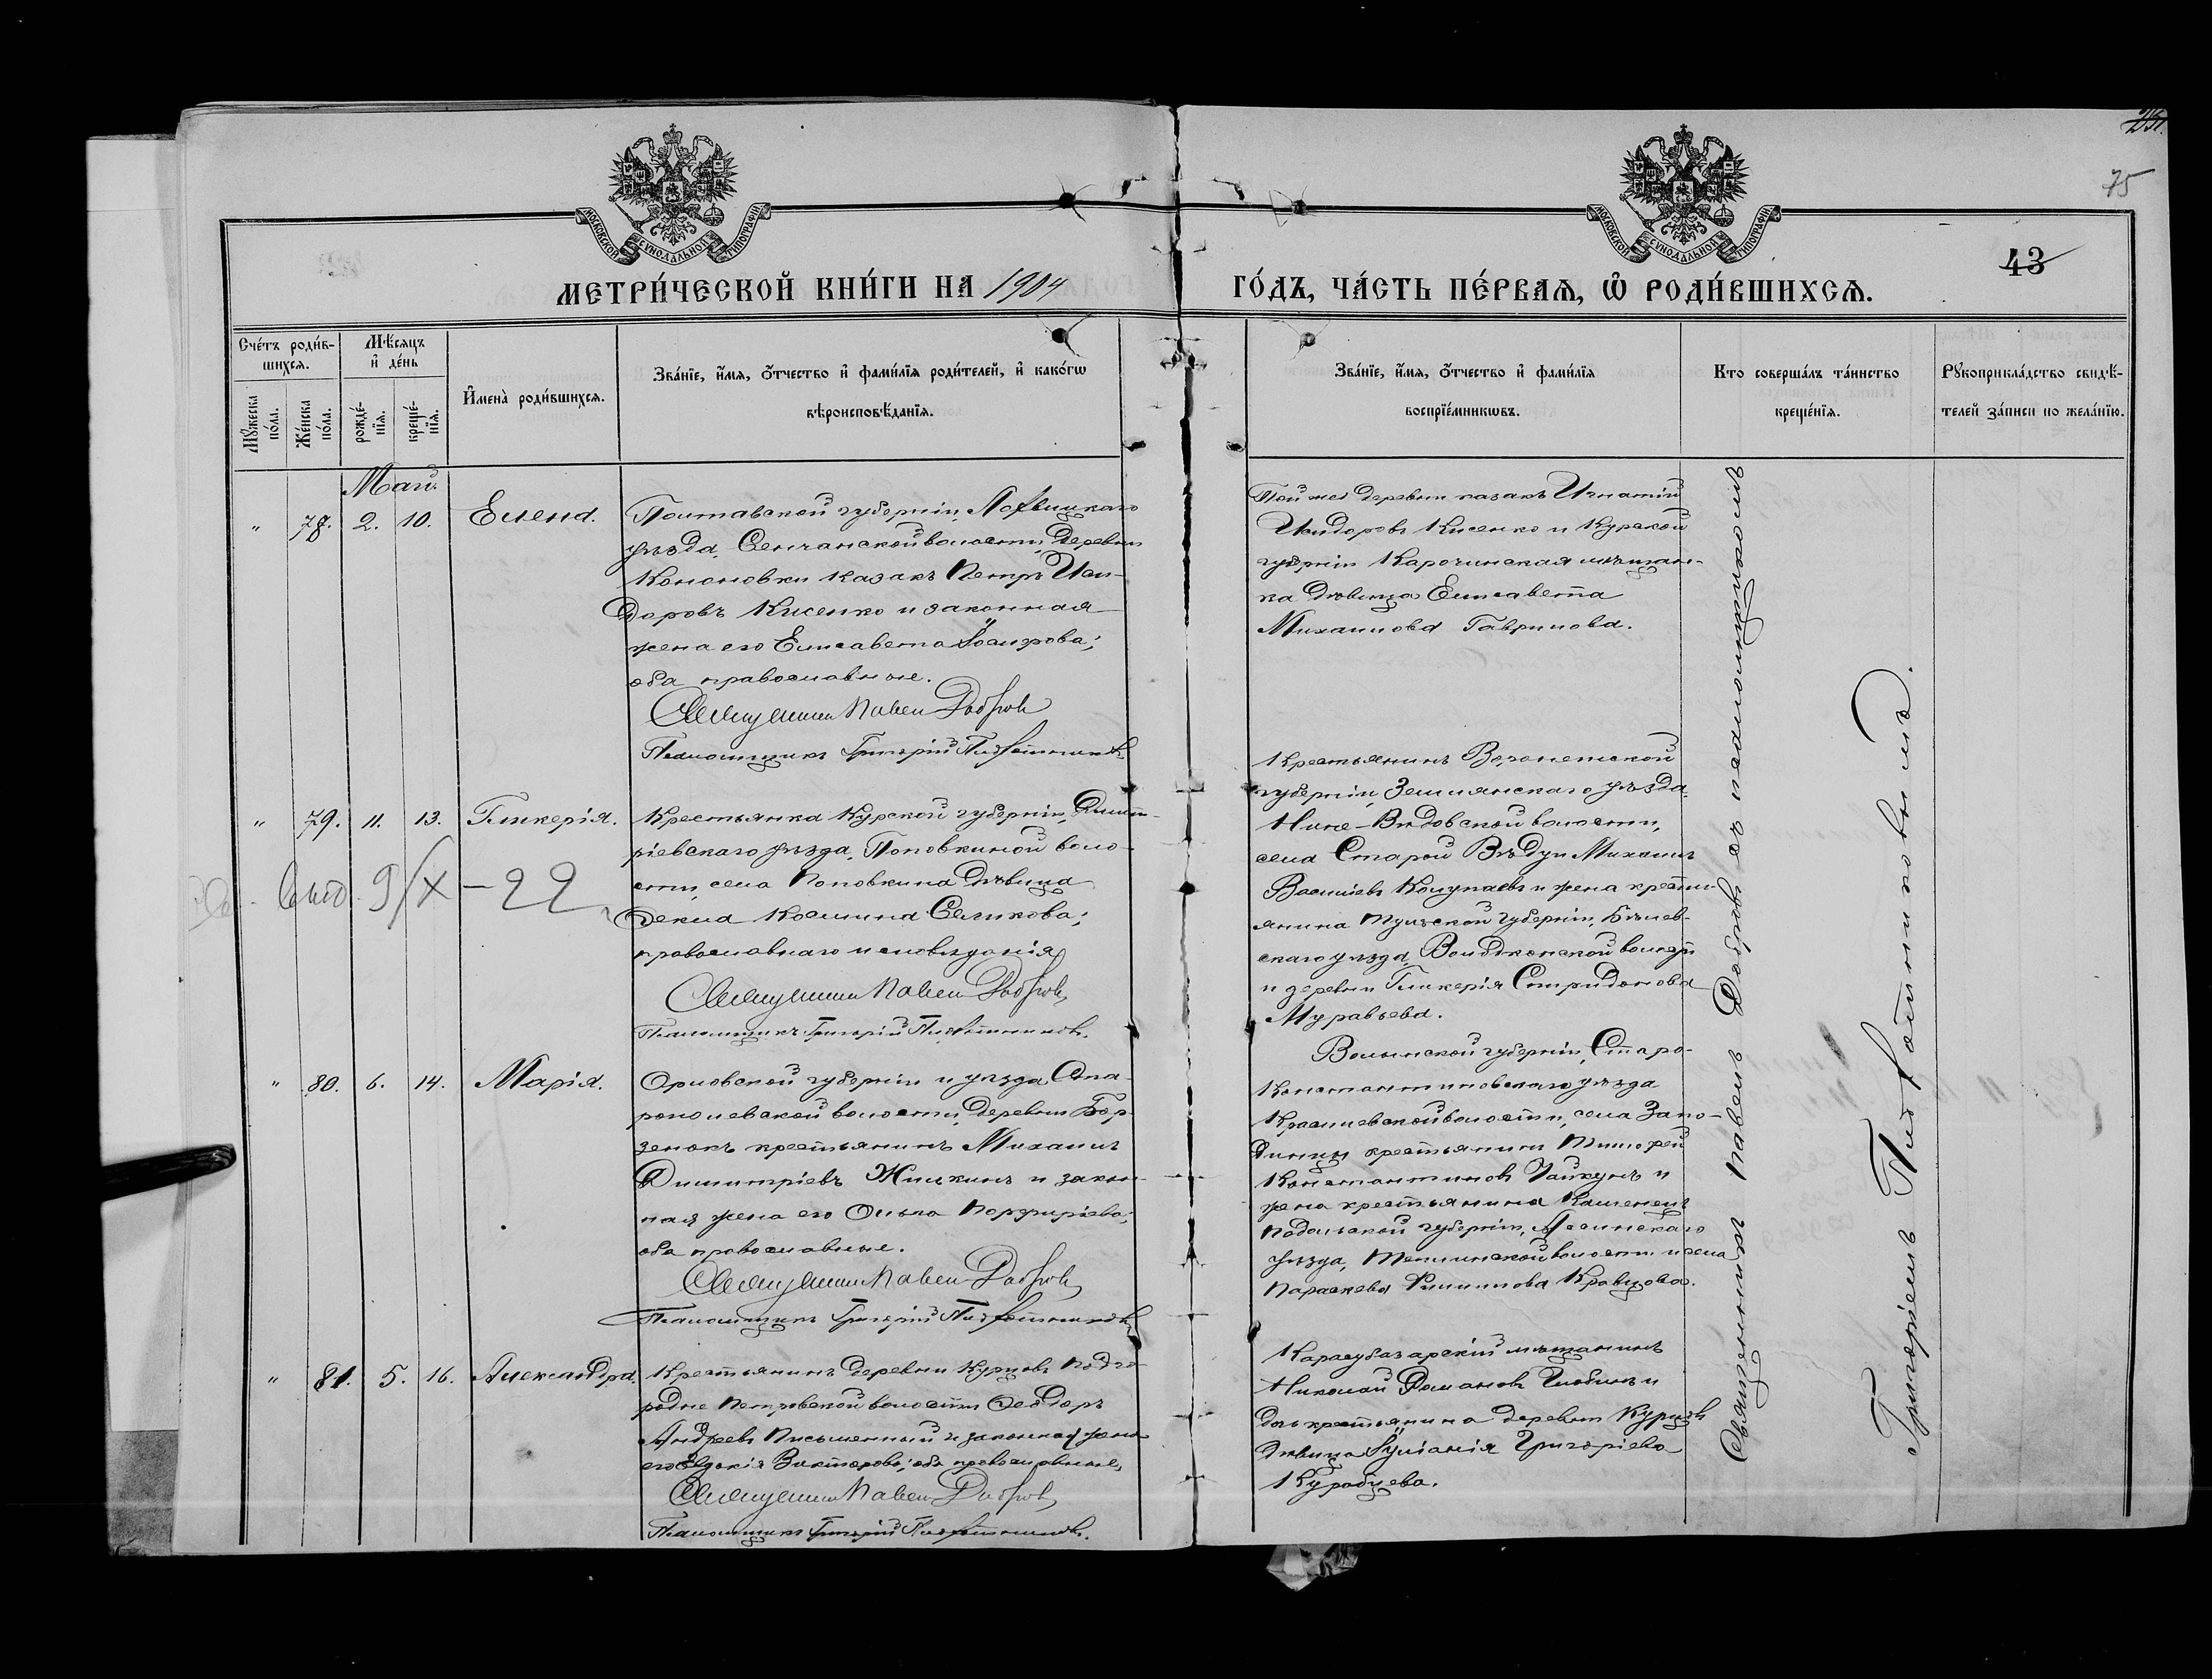 75
43
МОСКОВСКОЙ СѴНОДАЛЬНОЙ ТИПОГРАФІИ
МОСКОВСКОЙ СѴНОДАЛЬНОЙ ТИПОГРАФІИ
МЕТРИ́ЧЕСКОЙ КНИ́ГИ НА 1904 ГО́ДЪ, ЧА́СТЬ ПЕ́РВАѦ, Ѡ РОДИ́ВШИХСѦ.
Сче́тъ роди́в-
шихсѧ.
Мꙋ́жеска по́ла.
Же́нска по́ла.
Мѣ́сѧцъ
и҆ де́нь
рожде́-
нїѧ.
креще́-
нїѧ.
И҆мена̀ роди́вшихсѧ.
Зва́нїе, и҆́мѧ, ѻ҆́тчество и҆ фами́лїѧ роди́телей, и҆ како́гѡ
вѣроисповѣ́данїѧ.
Зва́нїе, и҆́мѧ, ѻ҆́тчество и҆ фами́лїѧ
воспрїе́мникѡвъ.
Кто соверша́лъ та́инство
креще́нїѧ.
Рꙋкоприкла́дство свидѣ́-
телей за́писи по жела́нїю.
Май.
" 78. 2. 10. Елена.
Полтавской губерніи, Лохвицкаго
уѣзда, Сенчанской волости, деревни
Кононовки казакъ Петръ Иси-
доровъ Кисенко и законная
жена его Елисавета
оба православные.
Священникъ Павелъ Добровъ
Псаломщикъ Григорій
Той же деревни казакъ Игнатій
Исидоровъ Кисенко и Курской
губерніи Корочинская мѣщан-
ка дѣвица Елисавета
Михаилова Гаврилова.
" 79. 11. 13. Гликерія.
Крестьянка Курской губерніи, Дмит-
ріевскаго уѣзда, Поповкиной воло-
сти, села Поповкина дѣвица
Ѳекла Косьмина
православнаго исповѣданія
Священникъ Павелъ Добровъ
Псаломщикъ Григорій
Крестьянинъ Воронежской
губерніи, Землянскаго уѣзда,
Ниже-Вѣдовской волости,
села Старой Вѣдуги Михаилъ
Васильевъ Колупаевъ и жена кресть-
янина Тульской губерніи, Бѣлев-
скаго уѣзда, волости
и деревни Гликерія Спиридонова
Муравьева.
9/X - 22
" 80. 6. 14. Марія.
Орловской губерніи и уѣзда, Ста-
волости, деревни Бор-
зенокъ крестьянинъ Михаилъ
Димитріевъ Жилкинъ и закон-
ная жена его Ольга Порфиріева;
оба православные.
Священникъ Павелъ Добровъ
Псаломщикъ Григорій
Волынской губерніи, Старо-
Константиновскаго уѣзда
Красилевской волости, села Запо-
динец крестьянинъ Тимофей
Константиновъ и
жена крестьянина Каменецъ
Подольской губерніи,
уѣзда, волости и села
Параскева Филиппова Кравцова.
" 81. 5. 16. Александра.
Крестьянинъ деревни Курцовъ Подго-
родне Петровской волости Ѳеодоръ
Андреевъ Письменный и законная жена
его Евдокія Викторова; оба православные,
Священникъ Павелъ Добровъ
Псаломщикъ Григорій
Карасубазарскій мѣщанинъ
Николай Романовъ и
дочь крестьянина деревни Курцовъ
дѣвица Іуліанія Григоріева
Священникъ Павелъ Добровъ съ псаломщикомъ
Григоріемъ